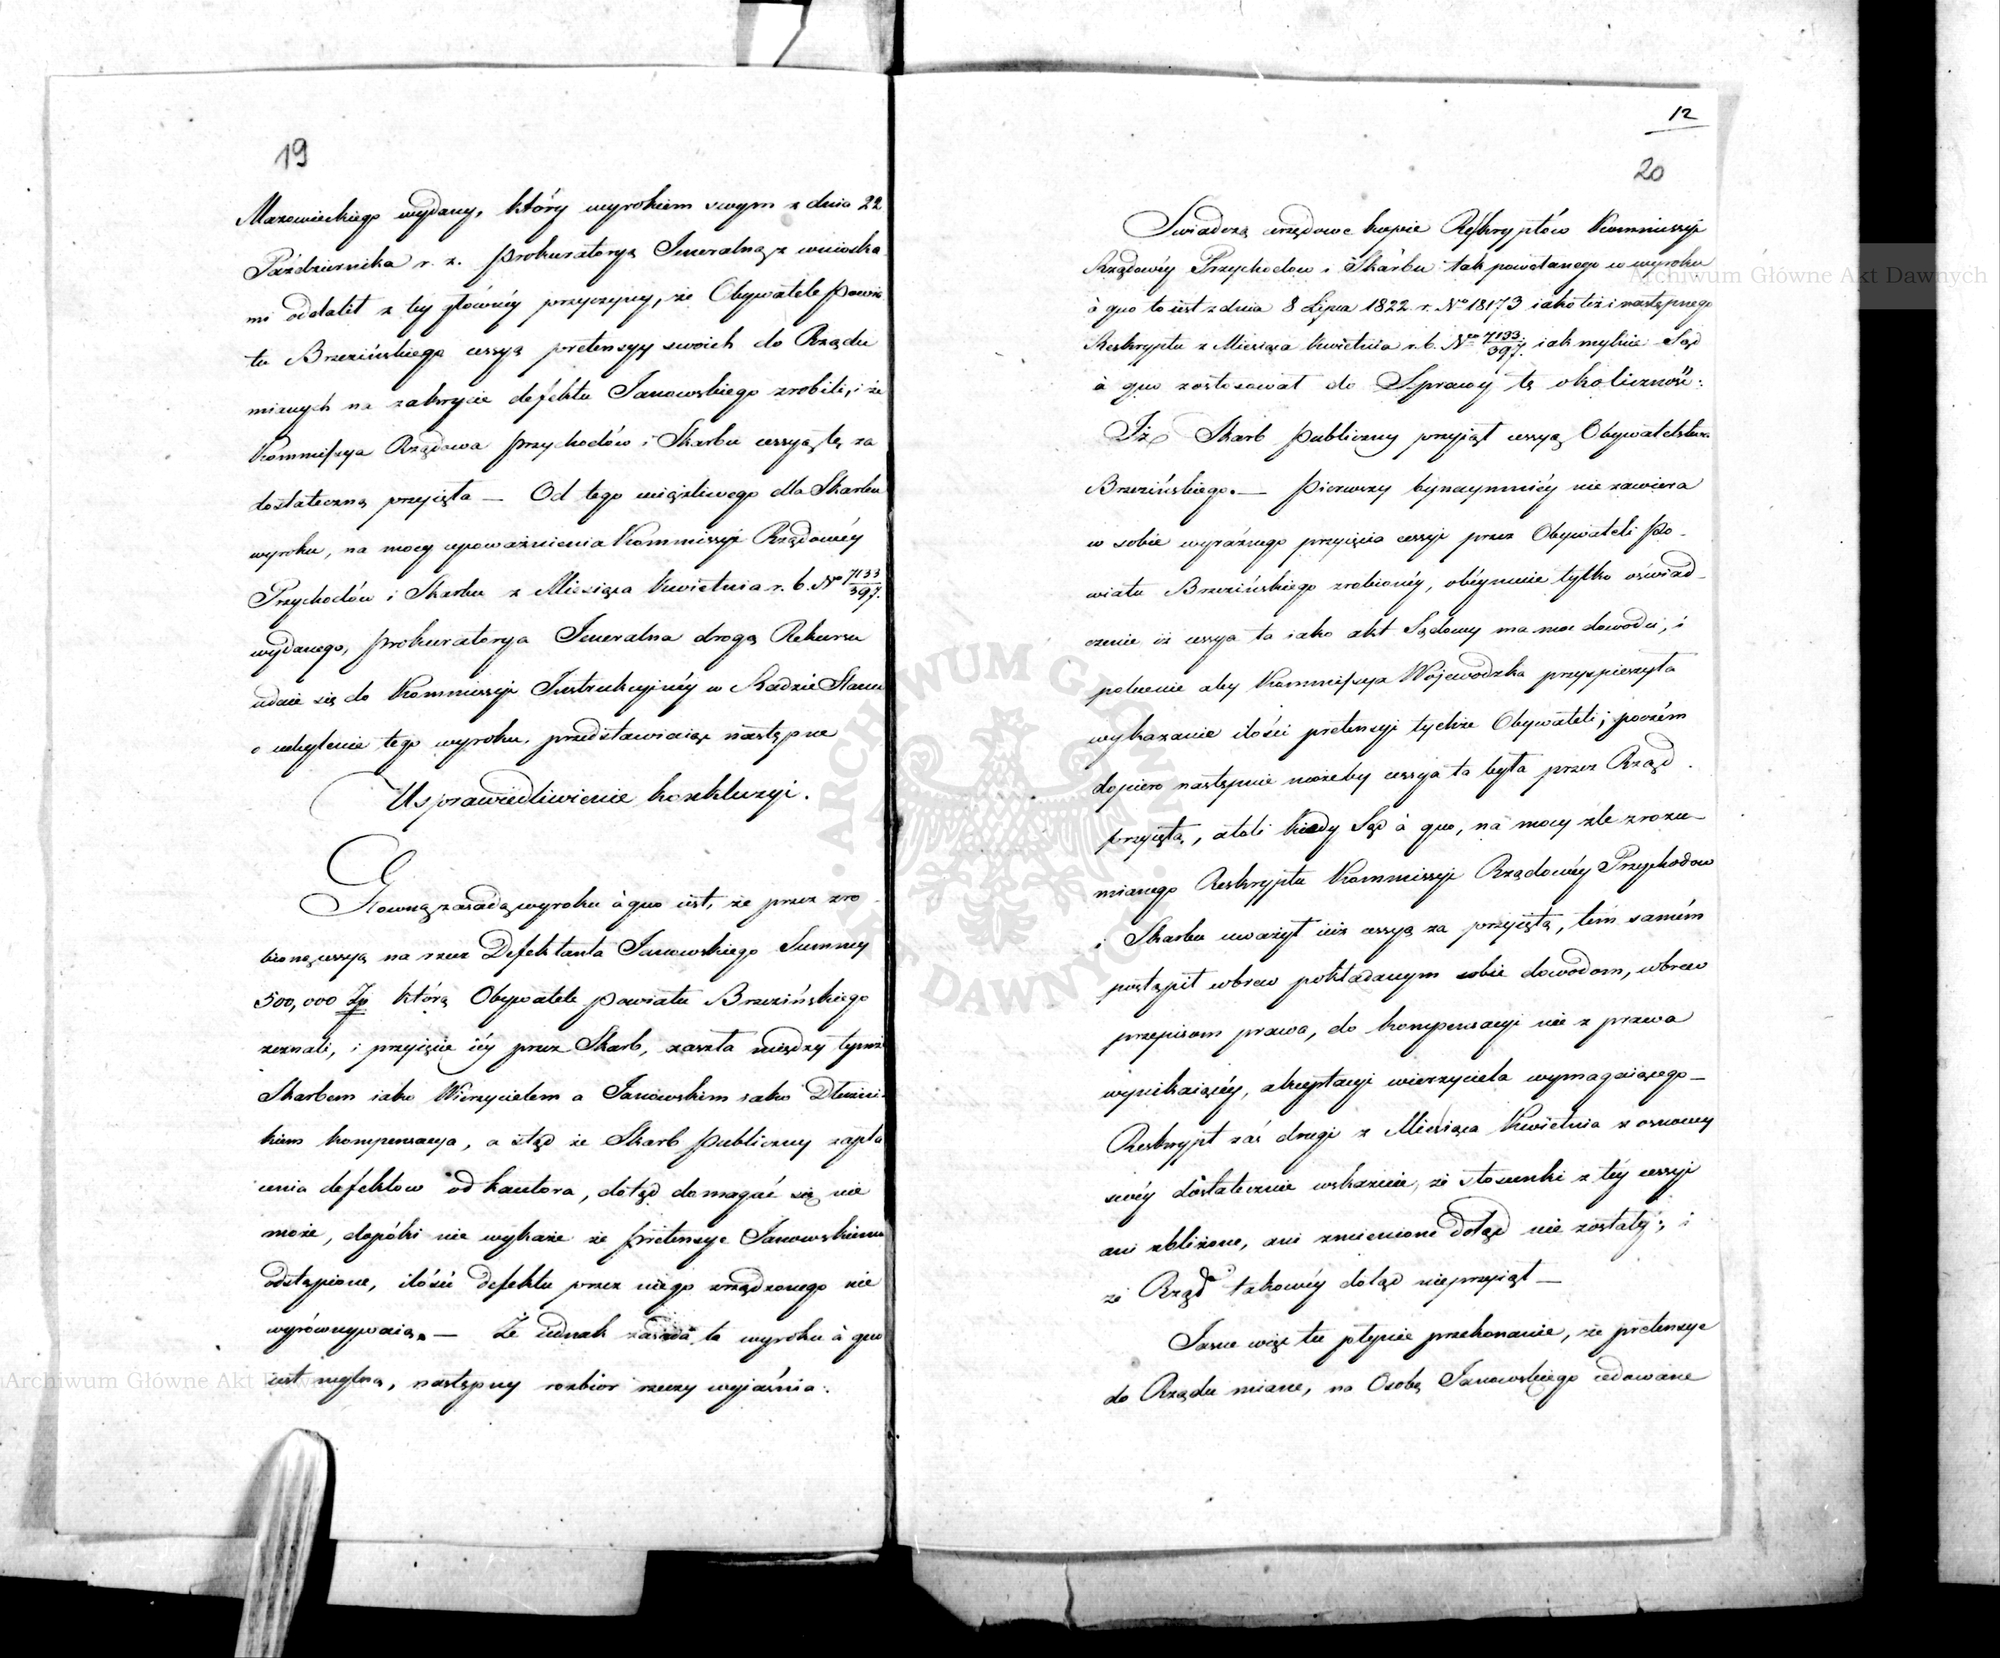 19
Mazowieckiego wydany, który wyrokiem swym z dnia 22
Października r. z. Prokuratoryą Jeneralną z wnioska
mi oddalił z tey główney przyczyny, że Obywatele Powia
tu Brzezińskiego cessyą pretensyy swoich do Rządu
mianych na zakrycie defektu Janowskiego zrobili, i że
Kommissya Rządowa Przychodów i Skarbu cessyą tę za
dostateczną przyięła — Od tego uciążliwego dla Skarbu
wyroku, na mocy upoważnienia Kommissyi Rządowéy
Przychodów i Skarbu z Miesiąca Kwietnia r. b. No 7133/397.
wydanego, Prokuratorya Jeneralna drogą Rekursu
udaie się do Kommissyi Instrukcyinéy w Radzie Stanu
o uchylenie tego wyroku, przedstawiaiąc następne
Usprawiedliwienie konkluzyi.
Główną zasadą wyroku à quo iest, że przez zro
bioną cessyą na rzecz Defektanta Janowskiego Summy
500,000 Zp którą Obywatele Powiatu Brzezińskiego
zeznali, i przyięcie iéy przez Skarb, zaszła między tymże
Skarbem iako Wierzycielem a Janowskim iako Dłużni-
kiem kompensacya, a ztąd że Skarb Publiczny zapła
cenia defektow od kautora, dotąd domagać się nie
może, dopóki nie wykaże że Pretensye Janowskiemu
odstąpione, ilości defektu przez niego zrządzonego nie
wyrównywaią. — Że iednak zasada ta wyroku à quo
iest mylną, następny rozbiór rzeczy wyiaśnia.
12
20
Swiadczą urzędowe kopie Reskryptów Kommissyi
Rządowéy Przychodow i Skarbu tak powołanego w wyroku
à quo to iest z dnia 8 Lipca 1822 r. No 18173 iako też i następnego
Reskryptu z Miesiąca Kwietnia r. b. Nro 7133/397. iak mylnie Sąd
à quo zastosował do Sprawy tę okoliczność:
Iż Skarb Publiczny przyiął cessyą Obywatelstwa
Brzezińskiego. — Pierwszy bynaymniéy nie zawiera
w sobie wyraźnego przyięcia cessyi przez Obywateli Po-
wiatu Brzezińskiego zrobionéy, obéymuie tylko oświad-
czenie iż cessya ta iako akt Sądowy ma moc dowodu, i
polecenie aby Kommissya Wojewodzka przyspieszyła
wykazanie ilości pretensyi tychże Obywateli; poczém
dopiero następnie możeby cessya ta była przez Rząd
przyiętą, atoli kiedy Sąd à quo, na mocy źle zrozu-
mianego Reskryptu Kommissyi Rządowéy Przychodow
i Skarbu uważył iuż cessyą za przyiętą, tém samém
postąpił wbrew pokładanym sobie dowodom, wbrew
przepisom prawa, do kompensacyi nie z prawa
wynikaiącéy, akceptacyi wierzyciela wymagaiącego —
Reskrypt zaś drugi z Miesiąca Kwietnia z osnowy
swéy dostatecznie wskazuie, że stosunki z téy cessyi
ani zbliżone, ani zmienione dotąd nie zostały; i
że Rząd takowéy dotąd nieprzyiął —
Jasne więc tu płynie przekonanie, że pretensye
do Rządu miane, na Osobę Janowskiego cedowane
Archiwum Główne Akt Dawnych
Archiwum Główne Akt Dawnych
ARCHIWUM GŁÓWNE AKT DAWNYCH